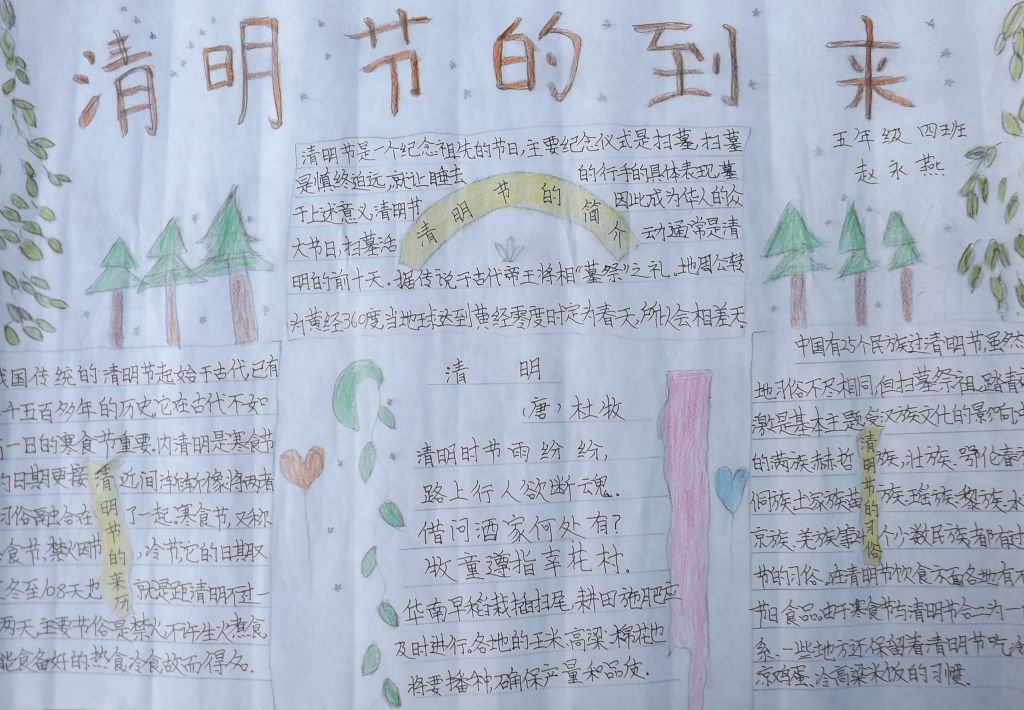 清明节的到来
五年级 四班
赵永燕
清明节是一个纪念祖先的节日,主要纪念仪式是扫墓,扫墓
是慎终追远,就让睡去的行手的具体表现,墓
于上述意义,清明节因此成为华人的众
大节日,扫墓活动通常是清
明的前十天。据传说于古代帝王将相“墓祭”之礼,地周公转
为黄经360度,当地球达到黄经零度时定为春天,所以会相差天。
清明节的简介
我国传统的清明节起始于古代,已有
十五百多年的历史,它在古代不如
一日的寒食节重要,内清明是寒食节
的日期更接近间连续
习俗 合在了一起。寒食节,又称
食节,禁火四节,冷节它的日期又
冬至108天也就是距清明不过一
两天,主要节俗是禁火不许生火煮食
能食备好的热食冷食故而得名.
清明节的来历
清 明
(唐)杜牧
清明时节雨纷纷,
路上行人欲断魂.
借问酒家何处有?
牧童遵指幸花村.
华南早稻栽插扫尾,耕田施肥应
及时进行。各地的玉米高梁、棉花也
将要播种,确保产量和品皮.
中国有25个民族过清明节,虽然
地习俗不尽相同,但扫墓祭祖,踏青
是基本主题,受汉族文化的影响,
的满族、赫哲族,壮族、鄂伦春
侗族、土家族、苗族、瑶族、黎族、水
京族、羌族 个少数民族都有过
节的习俗.在清明节饮食方面各地有不
节日食品。由于寒食节与清明节合二为一
系、一些地方还保留着清明节吃冷
凉鸡蛋、冷高梁米饭的习惯.
清明节的习俗